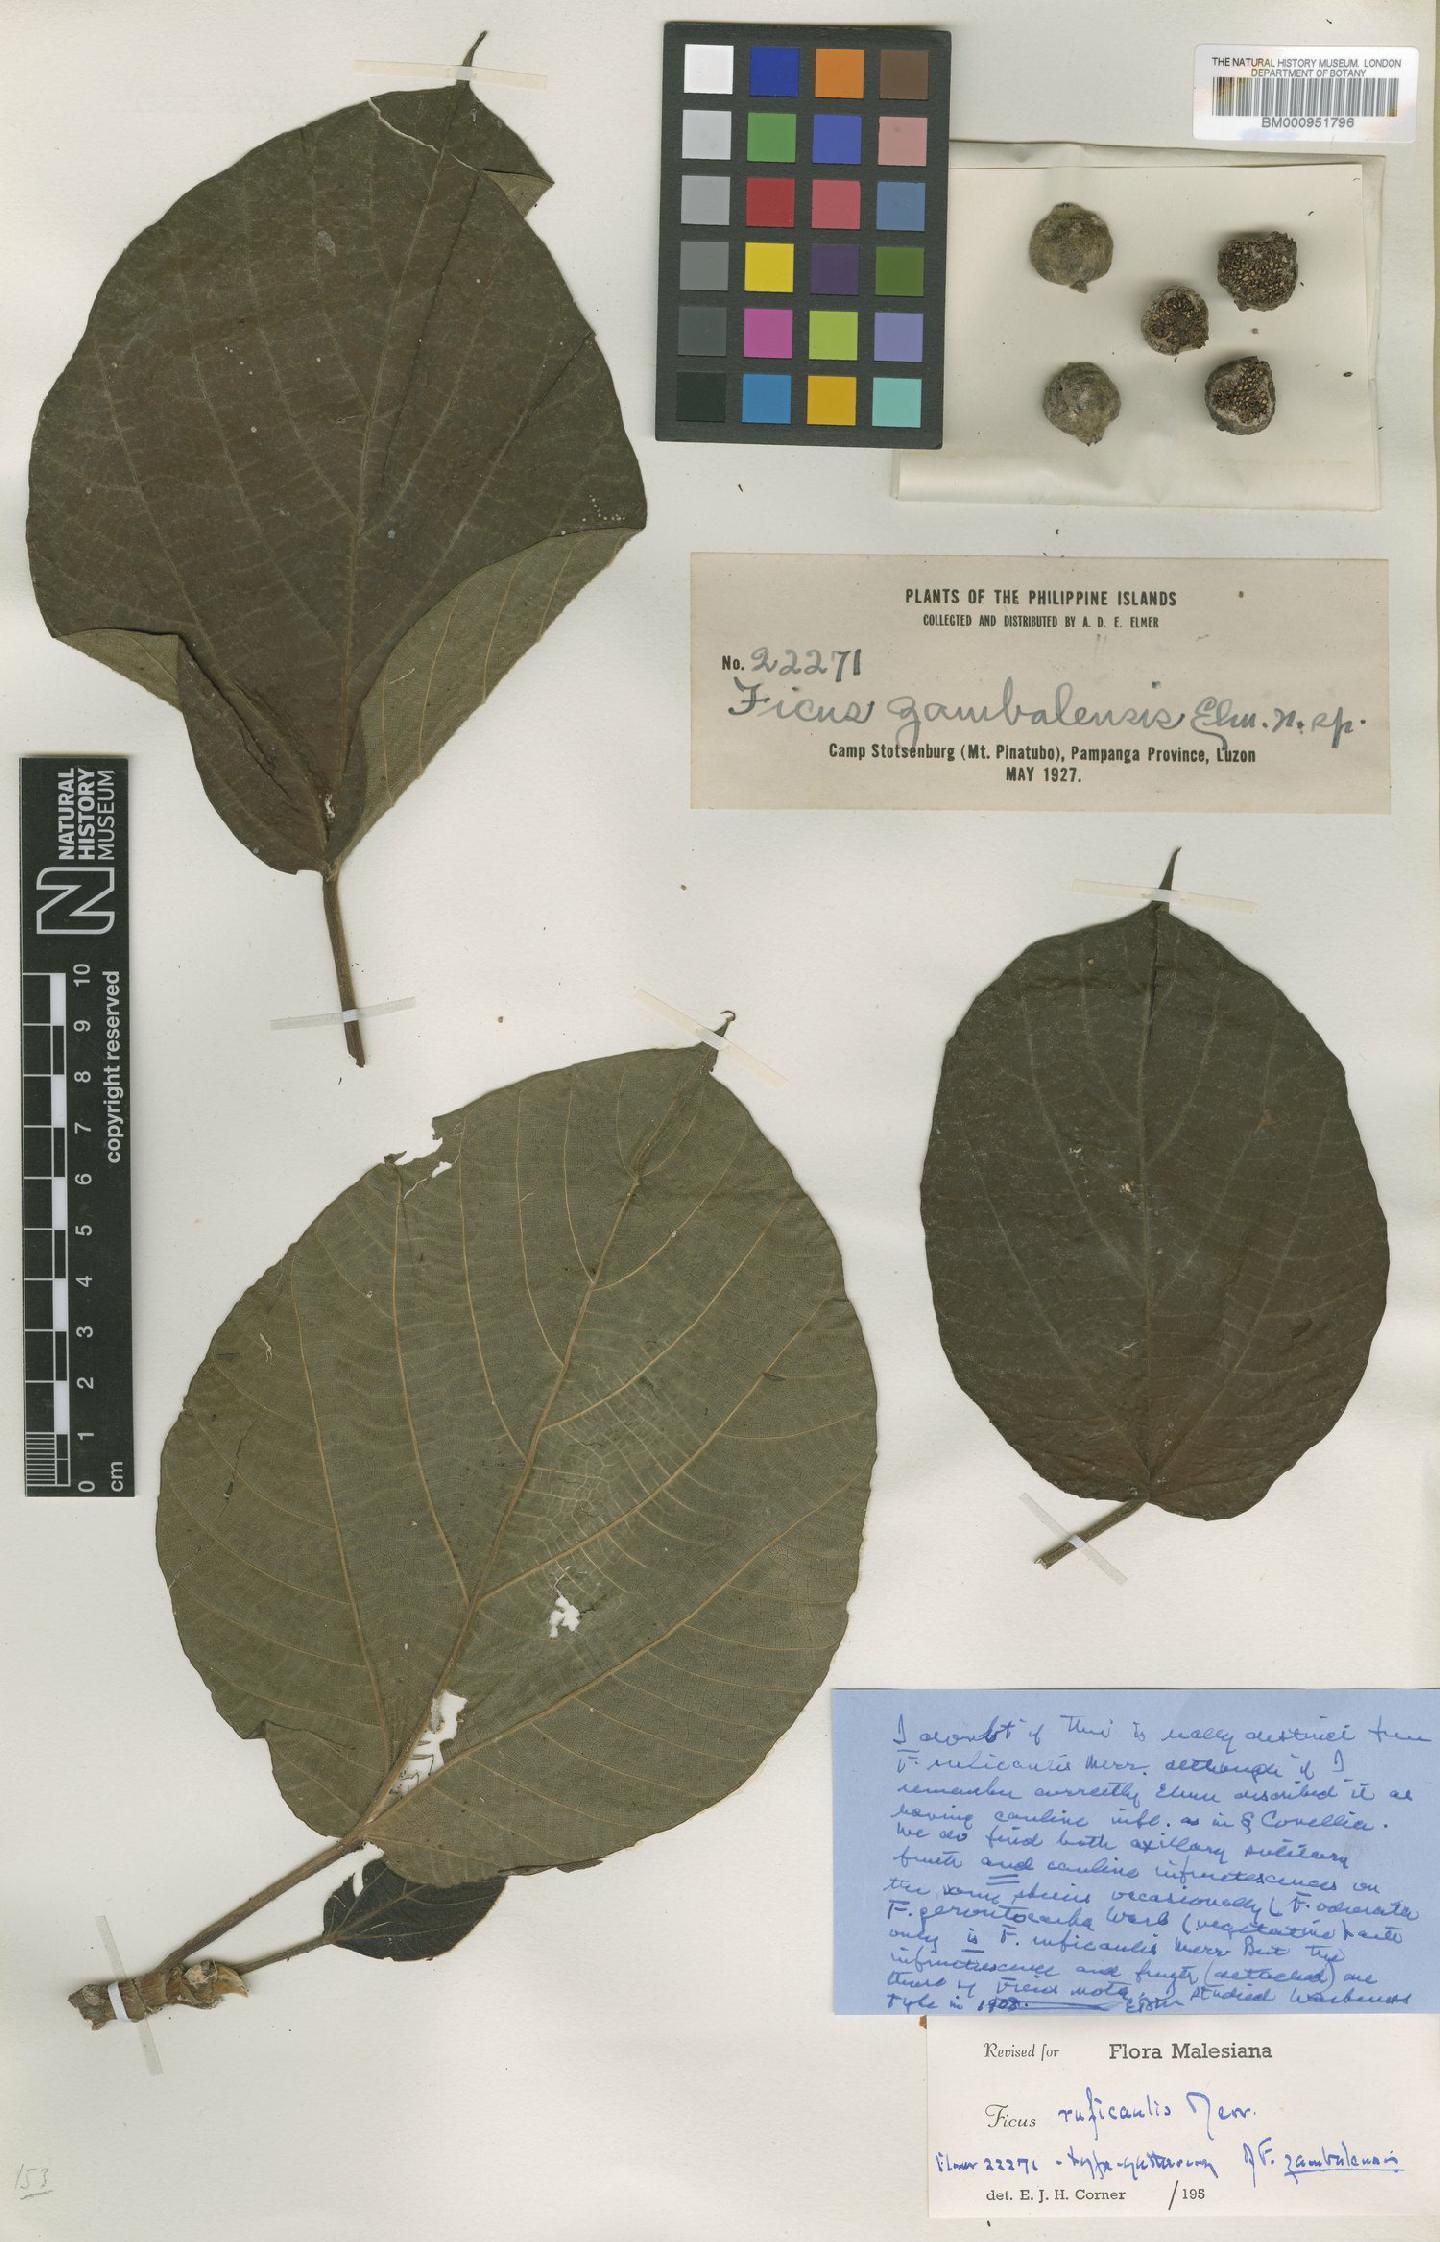 THE NATURAL HISTORY MUSEUM, LONDON
DEPARTMENT OF BOTANY
BM000951796
PLANTS OF THE PHILIPPINE ISLANDS
COLLECTED AND DISTRIBUTED BY A. D. E. ELMER
No. 22271
Ficus zambalensis Elm. n. sp.
Camp Stotsenburg (Mt. Pinatubo), Pampanga Province, Luzon
MAY 1927.
NATURAL
HISTORY
MUSEUM
10 9 8 7 6 5 4 3 2 1 0
cm
copyright reserved
I doubt if this is really distinct from
F. ruficaulis Merr. although if I
remember correctly Elmer described it as
having cauline infl. as in § Covellia.
We do find both axillary solitary
fruits and cauline infructescences on
the same species occasionally
F. gerontocarpa Warb (vegetative)
only is F. ruficaulis Merr. But the
infructescence and fruits (detached) are
those of Ficus nota. studied Warburgs
type in 1908.
Revised for Flora Malesiana
Ficus ruficaulis Merr.
Elmer 22271 - type-gathering of F. zambalensis
det. E. J. H. Corner /195
153